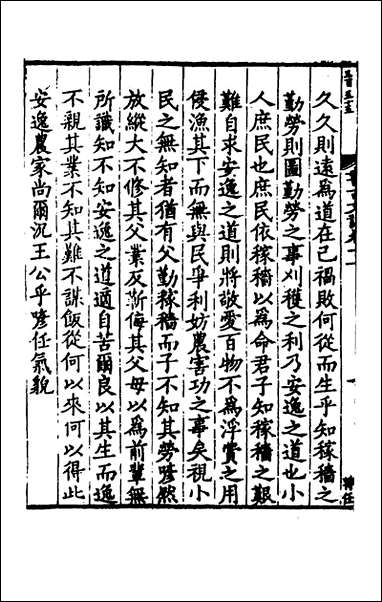 久久則遠為道在己禍敗何從而生乎知稼穡之
勤勞則圖勤勞之事刈穫之利乃安逸之道也小
人庶民也庶民依稼穡以為命君子知稼穡之艱
難自求安逸之道則將敬愛百物不為浮賞之用
侵漁其下而無與民爭利妨農害功之事矣視小
民之無知者猶有父勤稼穡而子不知其勞嗲然
放縱大不修其父業反斯侮其父母以為前輩無
所識知不知安逸之道適自苦爾良以其生而逸
不親其業不知其難不謀飯從何以來何以得此
安逸農家尚爾況王公乎嗲任氣貌